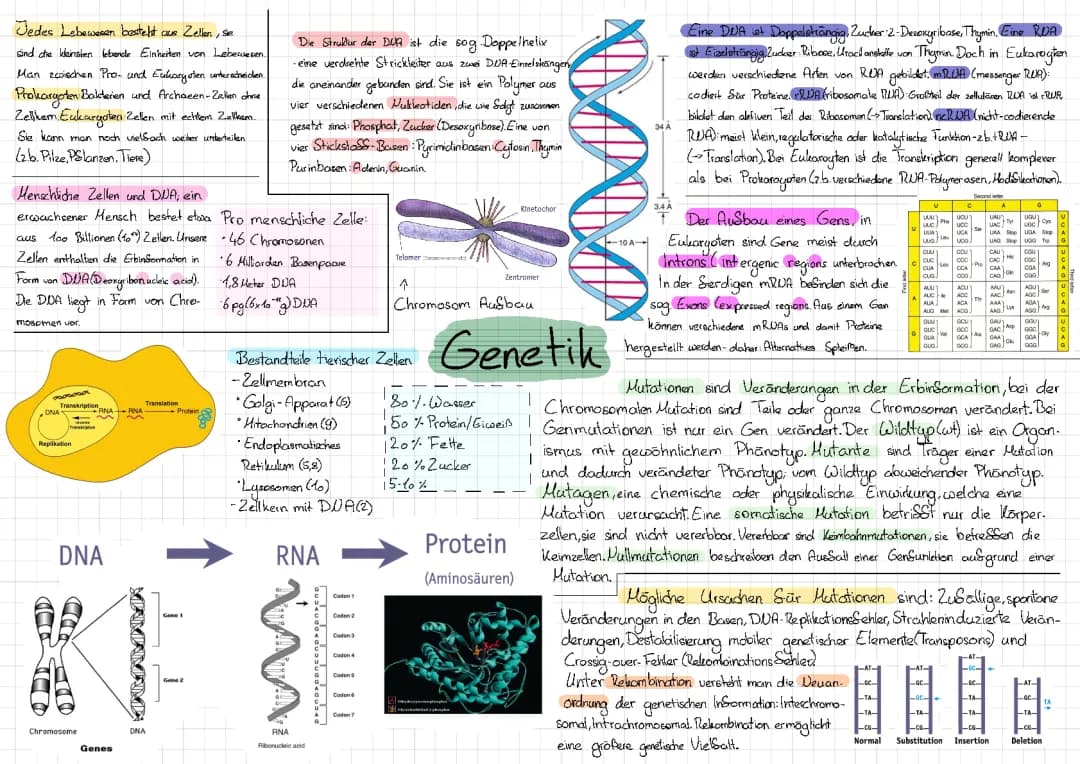 Jedes Lebewesen besteht aus Zellen, sie
sind die kleinsten lebende Einheiten von Lebewesen.
Man zwischen Pro- und Eukaryoten unterscheiden.
Prokaryoten: Bakterien und Archaeen-Zellen ohne
Zellkern. Eukaryoten Zellen mit echtem Zellkern.
Sie kann man noch vielfach weiter unterteilen
(z.b. Pilze, Pflanzen, Tiere)
Menschliche Zellen und DNA, ein
erwachsener Mensch bestet etwa
aus 100 Billionen Zellen. Unsere
Zellen enthalten die Erbinformation in
Form von DNA (Deoxyribonucleic acid).
Die DNA liegt in Form von Chro-
mosomen vor.
Pro menschliche Zelle:
· 46 Chromosonen
· 6 Milliarden Basenpaare
· 1,8 Meter DNA
Die Struktur der DNA ist die sog. Doppelhelix
- eine verdrehte Strickleiter aus zwei DNA-Einzelsträngen,
die aneinander gebunden sind. Sie ist ein Polymer aus
vier verschiedenen Nukleotiden, die wie folgt zusammen
gesetzt sind: Phosphat, Zucker (Desoxyribose). Eine von
vier Stickstoff-Basen: Pyrimidinbasen: Cytosin, Thymin
Purinbasen: Adenin, Guanin.
Kinetochor
Telomer
Zentromer
↑
Chromosom Aufbau
34 Å
3.4 Å
10 A
Eine DNA ist Doppelsträngig, Zucker-2-Desoxyribase, Thymin, Eine RNA
ist Einzelsträngig, Zucker Ribose, Uracil anstelle von Thymin. Doch in Eukaryoten
werden verschiedene Arten von RNA gebildet: mRNA (messenger RNA):
codiert für Proteine. rRNA (ribosomale RNA): Großteil der zellulären RNA ist rRNA,
bildet den aktiven Teil der Ribosomen (→Translation). ncRNA (nicht-codierende
RNA): meist klein, regulatorische oder katalytische Funktion - z.b. tRNA -
(→ Translation). Bei Eukaroyten ist die Transkription generell komplexer
als bei Prokaroyoten (z.b. verschiedene RNA-Polymerasen, Modifikationen).
Der Aufbau eines Gens, in
Eukaryoten sind Gene meist durch
Introns (intergenic regions unterbrochen.
In der fertigen mRNA befinden sich die
sog. Exons (expressed regions. Aus einem Gen
können verschiedene mRNAs und damit Proteine
hergestellt werden - daher: Alternatives Spleißen.
Second letter
U C A G
First letter
Third letter
UUU UUC Phe UUA UUG Leu
UCU UCC UCA UCG Ser
UAU UAC Tyr UAA Stop UAG Stop
UGU UGC Cys UGA Stop UGG Trp
CUU CUC CUA CUG Leu
CCU CCC CCA CCG Pro
CAU CAC His CAA CAG Gln
CGU CGC CGA CGG Arg
AUU AUC AUA Ile AUG Met
ACU ACC ACA ACG Thr
AAU AAC Asn AAA AAG Lys
AGU AGC Ser AGA AGG Arg
GUU GUC GUA GUG Val
GCU GCC GCA GCG Ala
GAU GAC Asp GAA GAG Glu
GGU GGC GGA GGG Gly
Genetik
DNA Transkription RNA RNA Translation Protein
Replikation
Bestandteile tierischer Zellen
- Zellmembran
· Golgi-Apparat (6)
· Mitochondrien (9)
· Endoplasmatisches
Retikulum (5,8)
· Lysosomen (10)
- Zellkern mit DNA (2)
80 % Wasser
50 % Protein/Eiweiß
20 % Fette
20 % Zucker
5-10 %
Mutationen sind Veränderungen in der Erbinformation, bei der
Chromosomalen Mutation sind Teile oder ganze Chromosomen verändert. Bei
Genmutationen ist nur ein Gen verändert. Der Wildtyp (wt) ist ein Organ-
ismus mit gewöhnlichem Phänotyp. Mutante sind Träger einer Mutation
und dadurch verändeter Phänotyp; vom Wildtyp abweichender Phänotyp.
Mutagen, eine chemische oder physikalische Einwirkung, welche eine
Mutation verursacht. Eine somatische Mutation betrifft nur die Körper-
zellen, sie sind nicht vererbbar. Vererbbar sind Keimbahnmutationen, sie betreffen die
Keimzellen. Nullmutationen beschreiben den Ausfall einer Genfunktion aufgrund einer
Mutation.
DNA
RNA
Protein
(Aminosäuren)
Gene 1
Gene 2
Chromosome
DNA
Genes
Codon 1
Codon 2
Codon 3
Codon 4
Codon 5
Codon 6
Codon 7
RNA
Ribonucleic acid
Mögliche Ursachen für Mutationen sind: Zufällige, spontane
Veränderungen in den Basen, DNA-Replikationsfehler, Strahleninduzierte Verän-
derungen, Destabilisierung mobiler genetischer Elemente (Transposons) und
Crossig-over-Fehler (Rekombinationsfehler)
Unter Rekombination versteht man die Neuan-
ordnung der genetischen Information: Interchromo-
somal, Intrachromosomal. Rekombination ermöglicht
eine größere genetische Vielfalt.
AT
GC
TA
TA
CG
Normal
AT
GC
GC
TA
CG
Substitution
AT
GC
GC
TA
TA
CG
Insertion
AT
GC
TA
CG
TA
Deletion